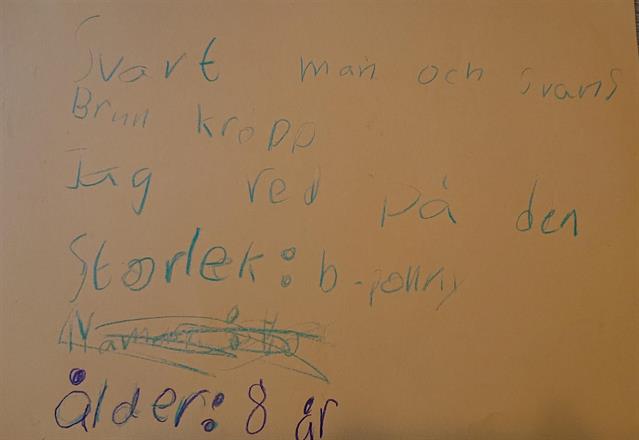 Svart man och svans
Brun kropp
Jag red på den
Storlek: b-ponny
ålder: 8 år